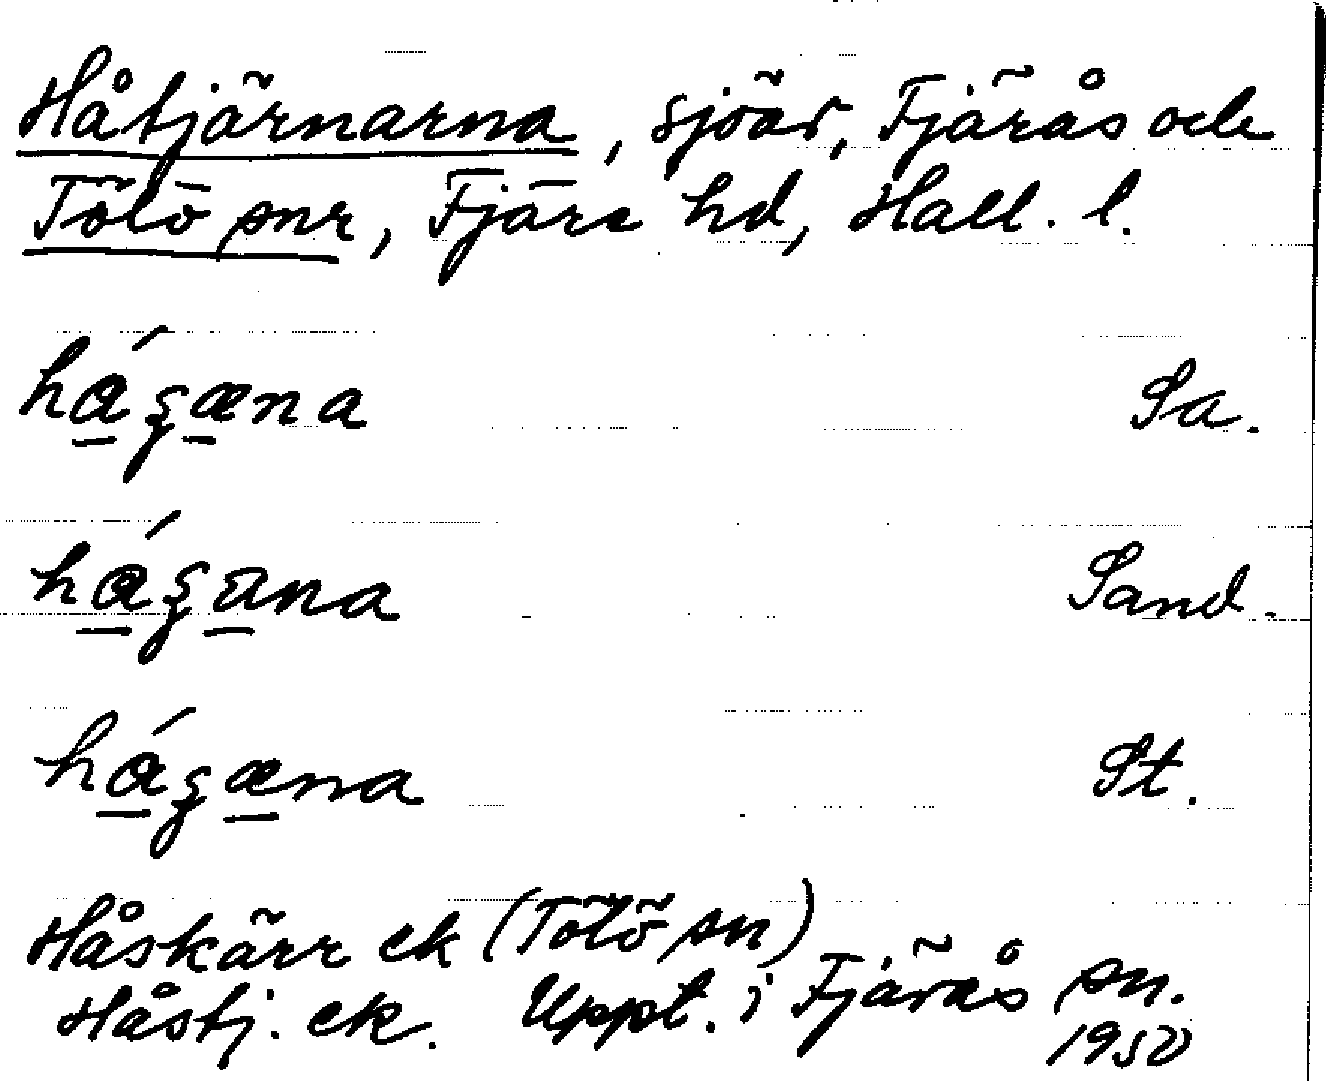 Håtjärnarna, sjöar, Fjärås och
Tölö snr, Fjäre hd, Hall. l.
há̱ʂæ̱na Sa.
há̱ʂa̱na Sand.
há̱ʂæ̱na St.
Håskärr ek (Tölö sn)
Håstj. ek. Uppt. i Fjärås sn.
1950